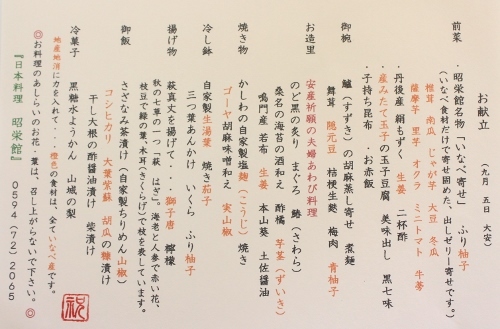 お献立　（九月五日　大安）
前菜　・昭栄館名物「いなべ寄せ」　ふり柚子
（いなべ食材だけで寄せ固めた、出しゼリー寄せです。）
椎茸　南瓜　じゃが芋　大豆　冬瓜
薩摩芋　里芋　オクラ　ミニトマト　牛蒡
・丹後産　絹もずく　生姜　二杯酢
・産みたて玉子の玉子豆腐　美味出し　黒七味
・子持ち昆布　・お赤飯
御椀　鱸（すずき）の胡麻蒸し寄せ　煮麺
舞茸　隠元豆　桔梗生麩　梅肉　青柚子
お造里　安産祈願の夫婦あわび料理
のど黒の炙り　まぐろ　鰆（さわら）
桑名の海苔の酒和え　酢橘　芋茎（ずいき）
鳴門産　若布　生姜　本山葵　土佐醤油
焼き物　かしわの自家製塩麹（こうじ）焼き
ゴーヤ胡麻味噌和え　実山椒
冷し鉢　自家製生湯葉　焼き茄子
三つ葉あんかけ　いくら　ふり柚子
揚げ物　萩真丈を揚げて・・　獅子唐　檸檬
秋の七草の一つ「萩　はぎ」。海老と人参で赤い花、
枝豆で緑の葉、木耳（きくらげ）で枝を表しています。
御飯　さざなみ茶漬け（自家製ちりめん山椒）
コシヒカリ　大葉紫蘇　胡瓜の糠漬け
干し大根の酢醤油漬け　柴漬け
冷菓子　黒糖水ようかん　山城の梨
地産地消に力を入れて・・橙色の食材は、全ていなべ産です。
◎お料理のあしらいのお花・葉は、召し上がらないで下さい。◎
『日本料理　昭栄館』　0594（72）2065
祝